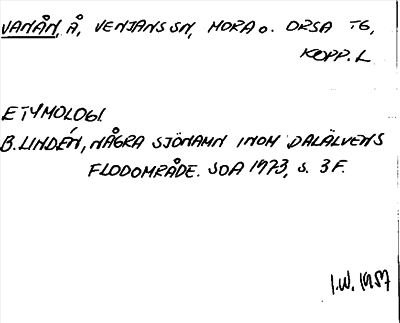 VANÅN, Å, VENJANS SN, MORA O. ORSA TG,
KOPP. L
ETYMOLOGI.
B. LINDÉN, NÅGRA SJÖNAMN INOM DALÄLVENS
FLODOMRÅDE. SOA 1973, S. 3 F.
I.W. 1987